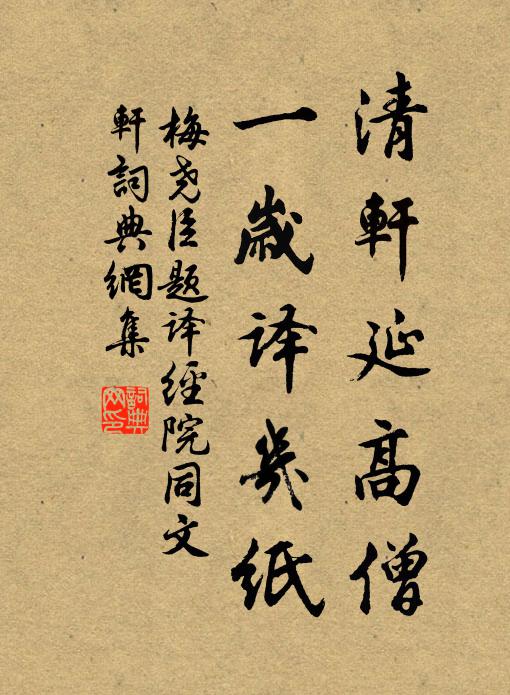 清軒延高僧
一歲译幾紙
梅尧臣题译經院同文
軒詞典網集
詞典
网印